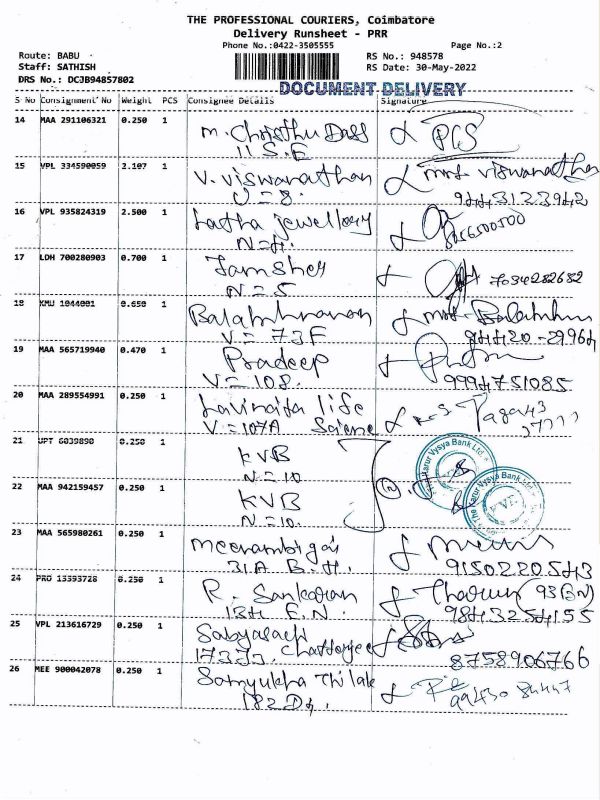 THE PROFESSIONAL COURIERS, Coimbatore
Delivery Runsheet - PRR
Phone No.:0422-3505555 Page No.:2
Route: BABU RS No.: 948578
Staff: SATHISH RS Date: 30-May-2022
DRS No.: DCJB94857802
DOCUMENT DELIVERY
S No Consignment No Weight PCS Consignee Details Signature
14 MAA 291106321 0.250 1 M. Christhu Dass
115.E
15 VPL 334590059 2.107 1 V. Viswanathan Viswanathan
U=8. 9443123942
16 VPL 935824319 2.500 1 Latha jewellery
N=4.
17 LDH 700280903 0.700 1 Jamsher 7034282682
N=5
18 KMU 1044001 0.650 1
V=73F 94420-29964
19 MAA 565719940 0.470 1 Pradeep
V=108. 9994751085
20 MAA 289554991 0.250 1 life
V=107A Science
21 UPT 6039890 0.250 1 KVB
N=10
22 MAA 942159457 0.250 1 KVB
N=10.
The Karur Vysya Bank Ltd.
The Karur Vysya Bank Ltd.
KVB
23 MAA 565980261 0.250 1 Meenambigai
31A B.H. 9150220543
24 PRO 13393728 0.250 1 R. Sankaran
134 E.N. 9843254155
25 VPL 213616729 0.250 1 Chatterjee
8758906766
26 MEE 900042078 0.250 1 Samyukha Thilak
182 D4.